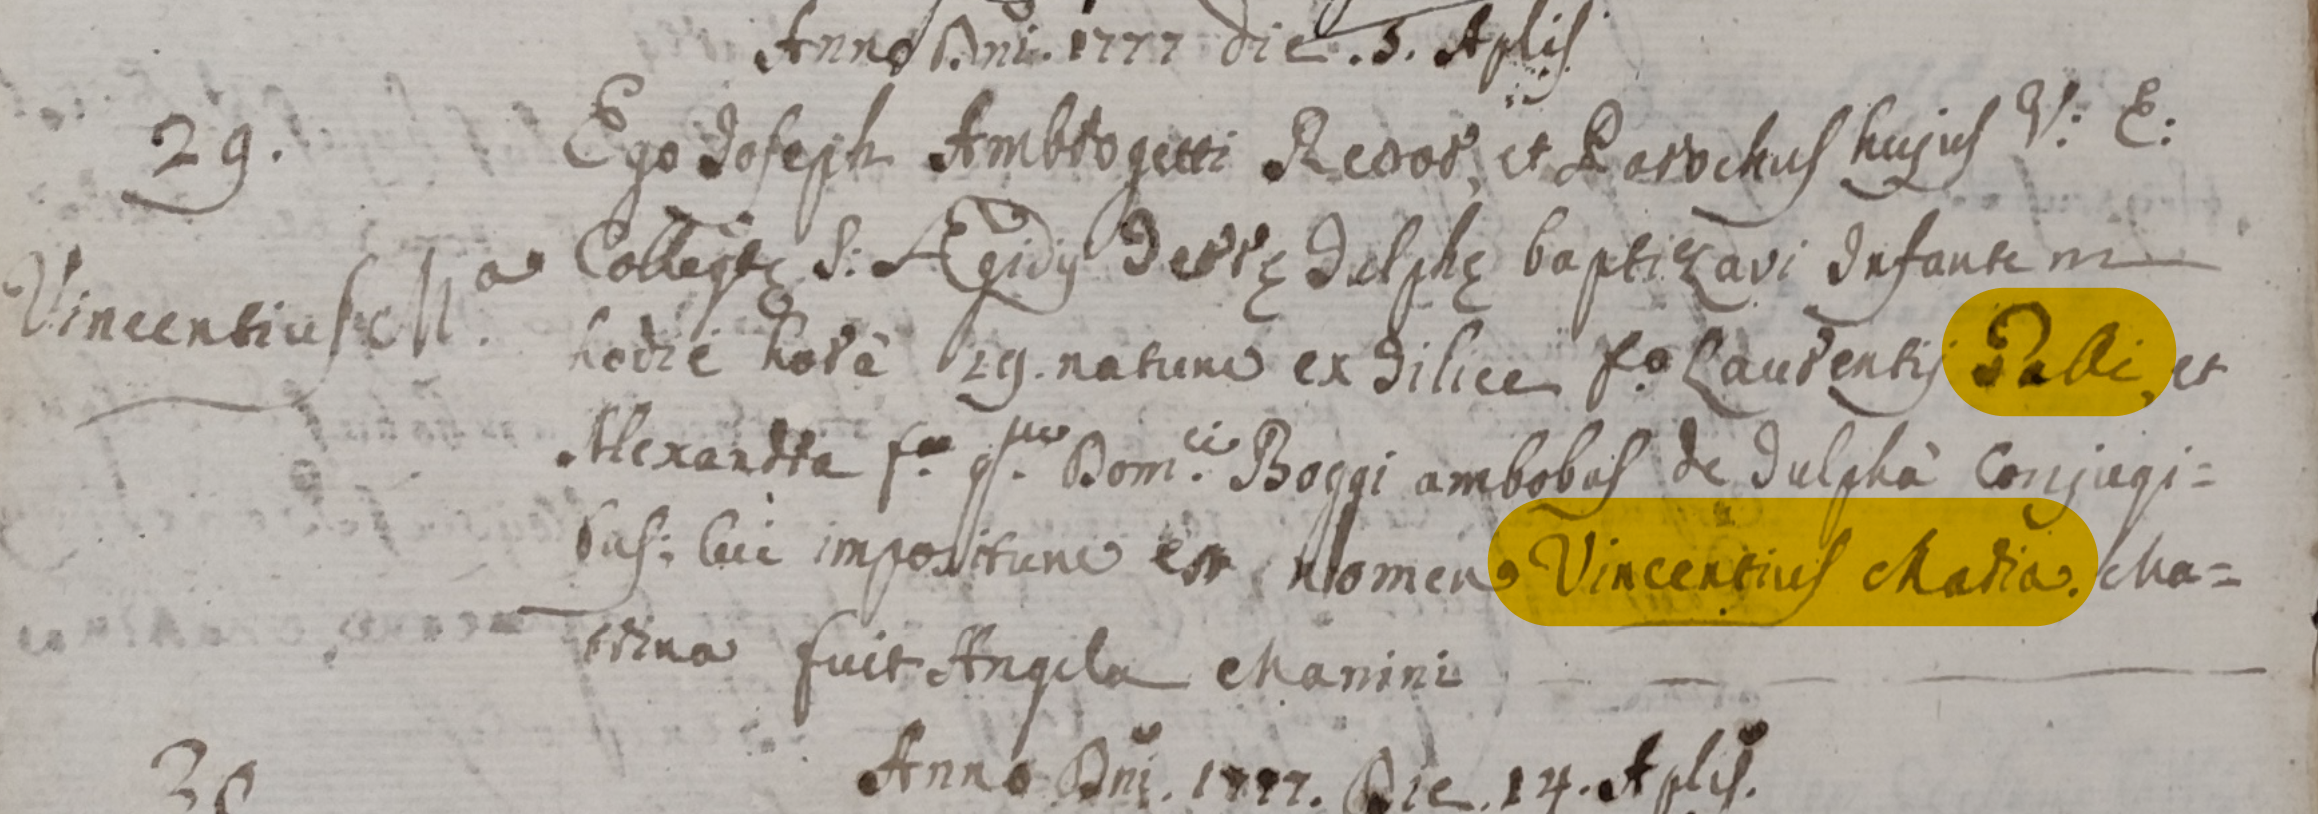 Anno Dni. 1777 die. 5. Aplis
29.
Ego Joseph Ambrogetti Rector, et Parochus hujus V: E:
Vincentius Ma.
Collegtę S: Ægidij Terrę Julphę baptizavi Infantem
hodie horâ 29. natum ex Felice fo Laurentij Palli, et
Alexandra fa qm Domci Boggi ambobus de Julphâ Conjugi=
bus: Cui impositum est nomen Vincentius Maria. Ma=
trina fuit Angela Manini
30
Anno Dni. 1777. Die. 14. Aplis.